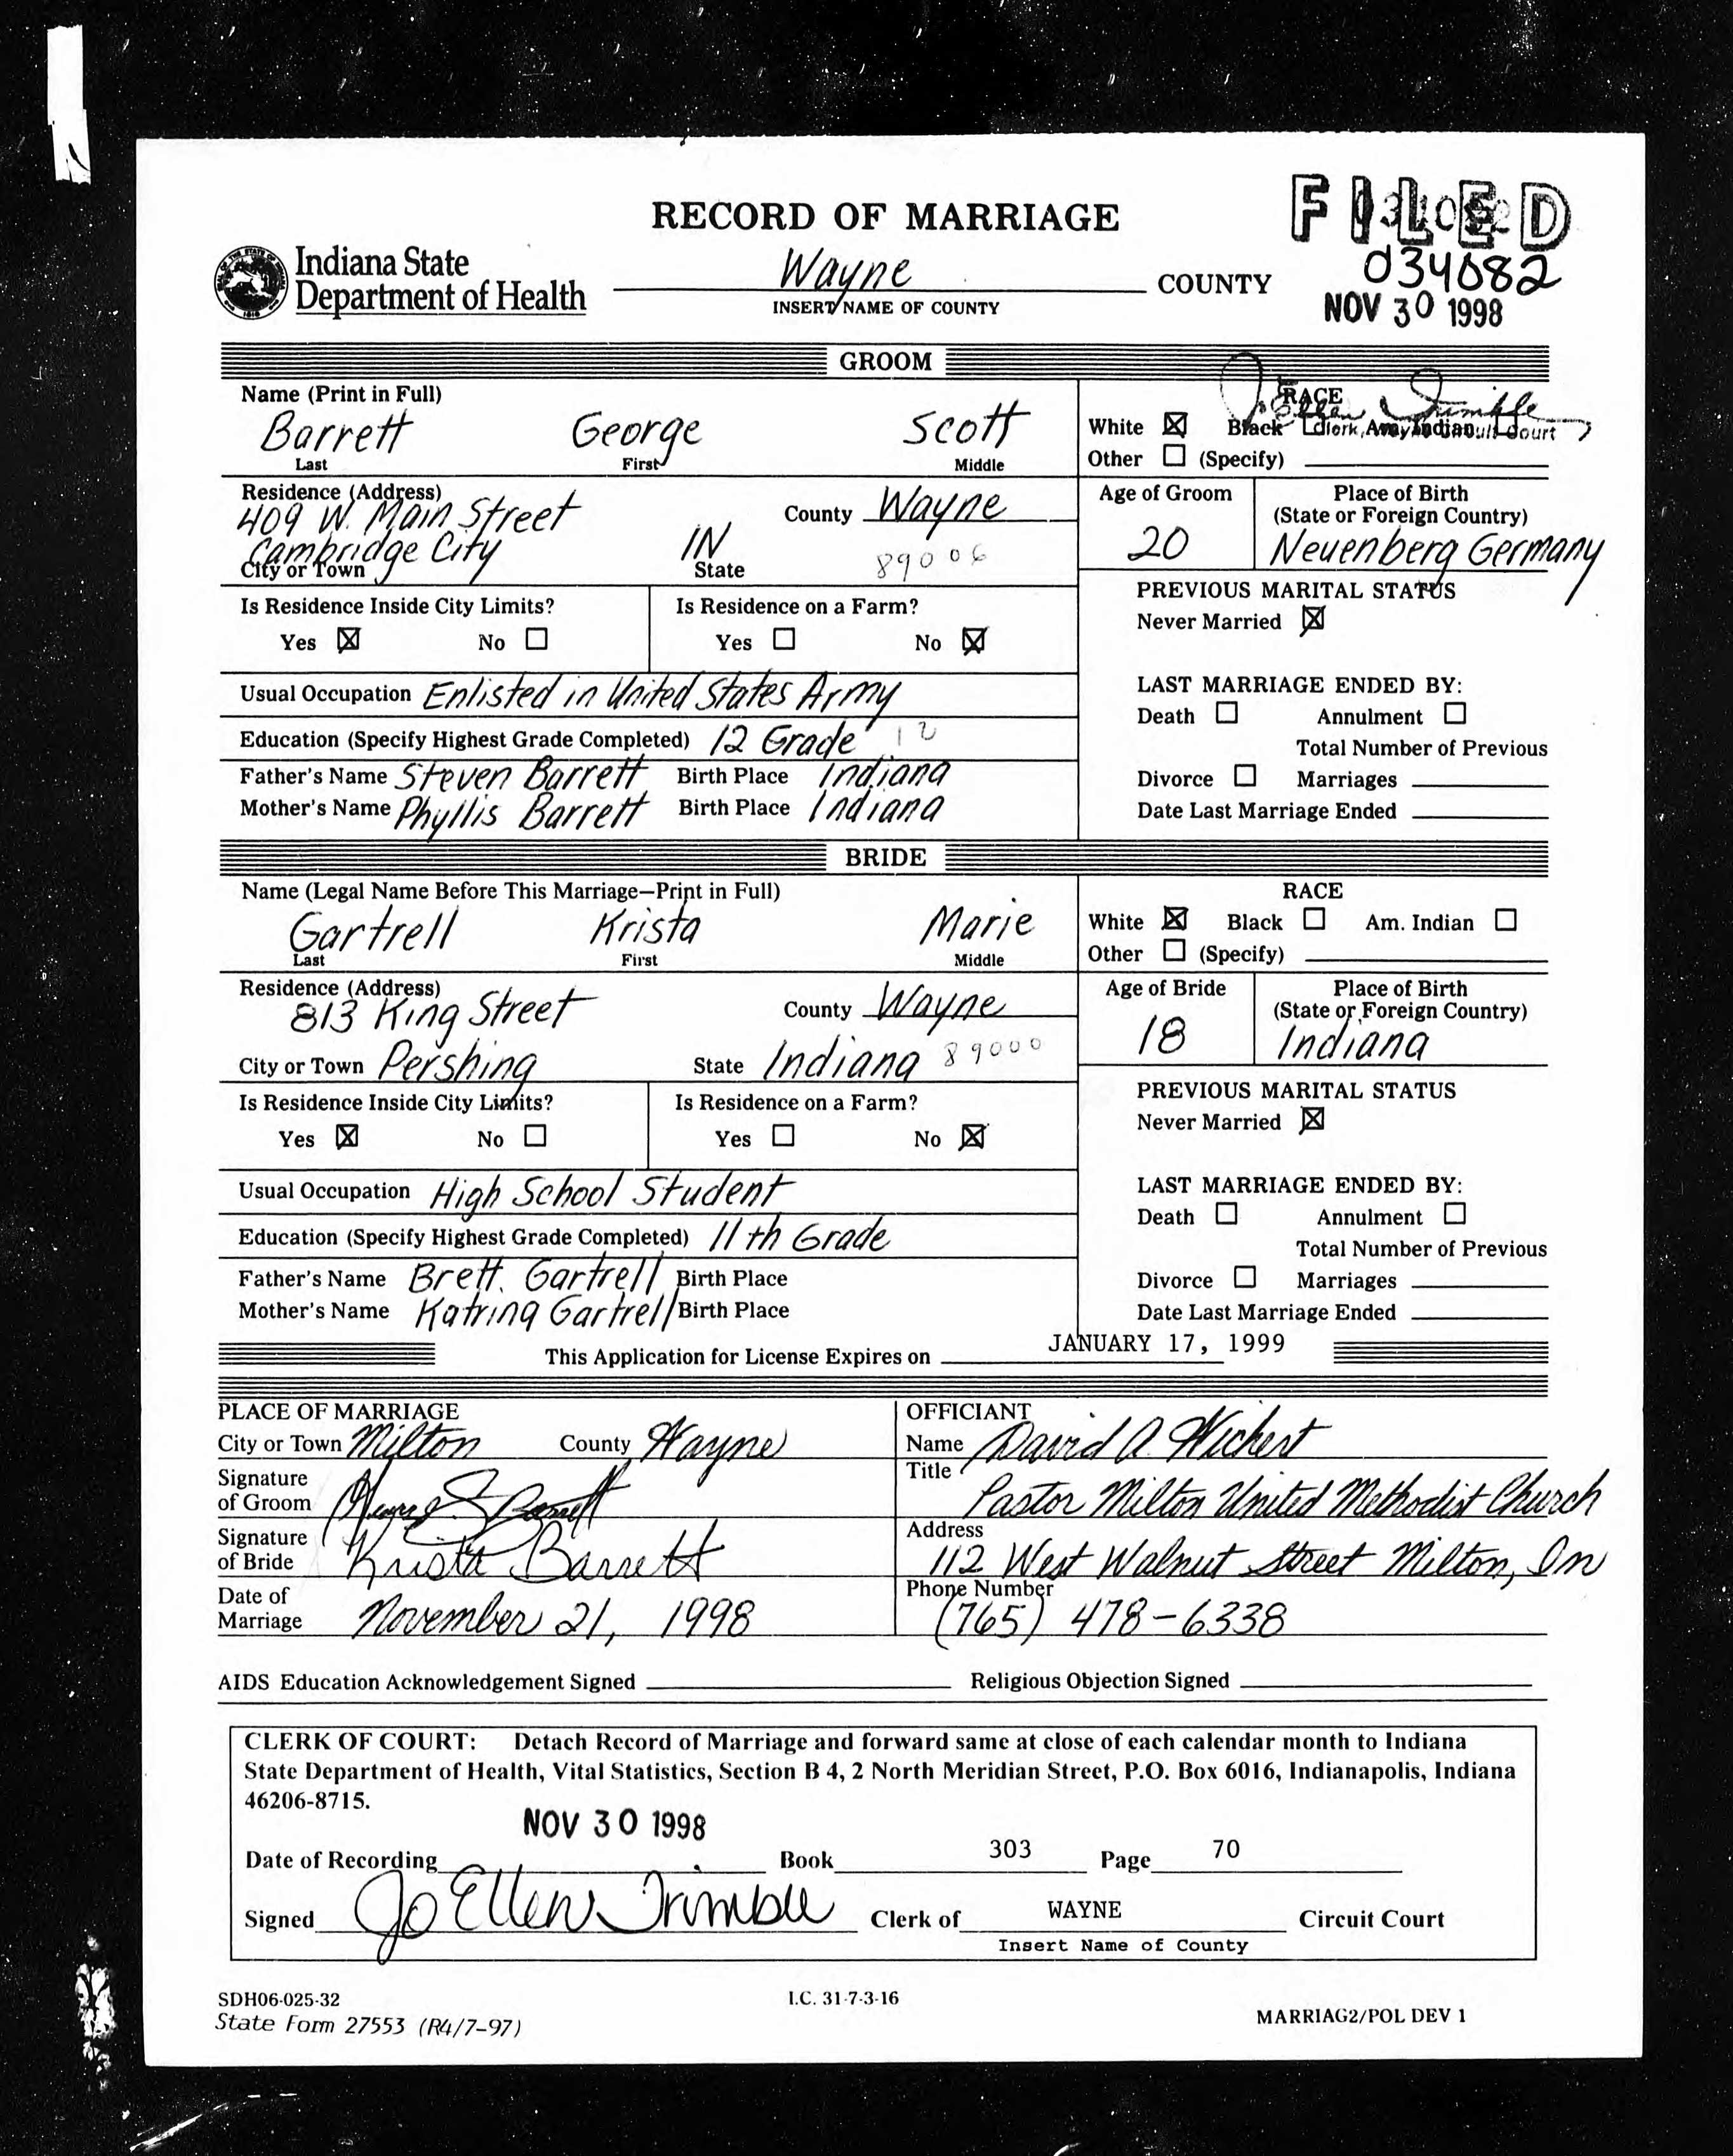 RECORD OF MARRIAGE
FILED
Indiana State
Department of Health
Wayne COUNTY
INSERT NAME OF COUNTY
034082
NOV 30 1998
GROOM
Name (Print in Full)
Barrett George Scott
Last First Middle
RACE
White ☒ Black ☐ Am. Indian ☐
Clerk, Wayne Circuit Court
Other ☐ (Specify)
Residence (Address)
409 W. Main Street
County Wayne
Cambridge City IN 89006
City or Town State
Age of Groom
20
Place of Birth
(State or Foreign Country)
Neuenberg Germany
Is Residence Inside City Limits?
Yes ☒ No ☐
Is Residence on a Farm?
Yes ☐ No ☒
PREVIOUS MARITAL STATUS
Never Married ☒
Usual Occupation Enlisted in United States Army
Education (Specify Highest Grade Completed) 12 Grade 12
Father's Name Steven Barrett Birth Place Indiana
Mother's Name Phyllis Barrett Birth Place Indiana
LAST MARRIAGE ENDED BY:
Death ☐ Annulment ☐
Total Number of Previous
Divorce ☐ Marriages
Date Last Marriage Ended
BRIDE
Name (Legal Name Before This Marriage—Print in Full)
Gartrell Krista Marie
Last First Middle
RACE
White ☒ Black ☐ Am. Indian ☐
Other ☐ (Specify)
Residence (Address)
813 King Street
County Wayne
City or Town Pershing State Indiana 89000
Age of Bride
18
Place of Birth
(State or Foreign Country)
Indiana
Is Residence Inside City Limits?
Yes ☒ No ☐
Is Residence on a Farm?
Yes ☐ No ☒
PREVIOUS MARITAL STATUS
Never Married ☒
Usual Occupation High School Student
Education (Specify Highest Grade Completed) 11th Grade
Father's Name Brett Gartrell Birth Place
Mother's Name Katrina Gartrell Birth Place
LAST MARRIAGE ENDED BY:
Death ☐ Annulment ☐
Total Number of Previous
Divorce ☐ Marriages
Date Last Marriage Ended
This Application for License Expires on JANUARY 17, 1999
PLACE OF MARRIAGE
City or Town Milton County Wayne
Signature
of Groom George S Barrett
Signature
of Bride Krista Barrett
Date of
Marriage November 21, 1998
OFFICIANT
Name David A. Wickert
Title
Pastor Milton United Methodist Church
Address
112 West Walnut Street Milton, In
Phone Number
(765) 478-6338
AIDS Education Acknowledgement Signed Religious Objection Signed
CLERK OF COURT: Detach Record of Marriage and forward same at close of each calendar month to Indiana
State Department of Health, Vital Statistics, Section B 4, 2 North Meridian Street, P.O. Box 6016, Indianapolis, Indiana
46206-8715.
NOV 30 1998
Date of Recording Book 303 Page 70
Signed Jo Ellen Trimble Clerk of WAYNE Circuit Court
Insert Name of County
SDH06-025-32
State Form 27553 (R4/7-97)
I.C. 31-7-3-16
MARRIAG2/POL DEV 1